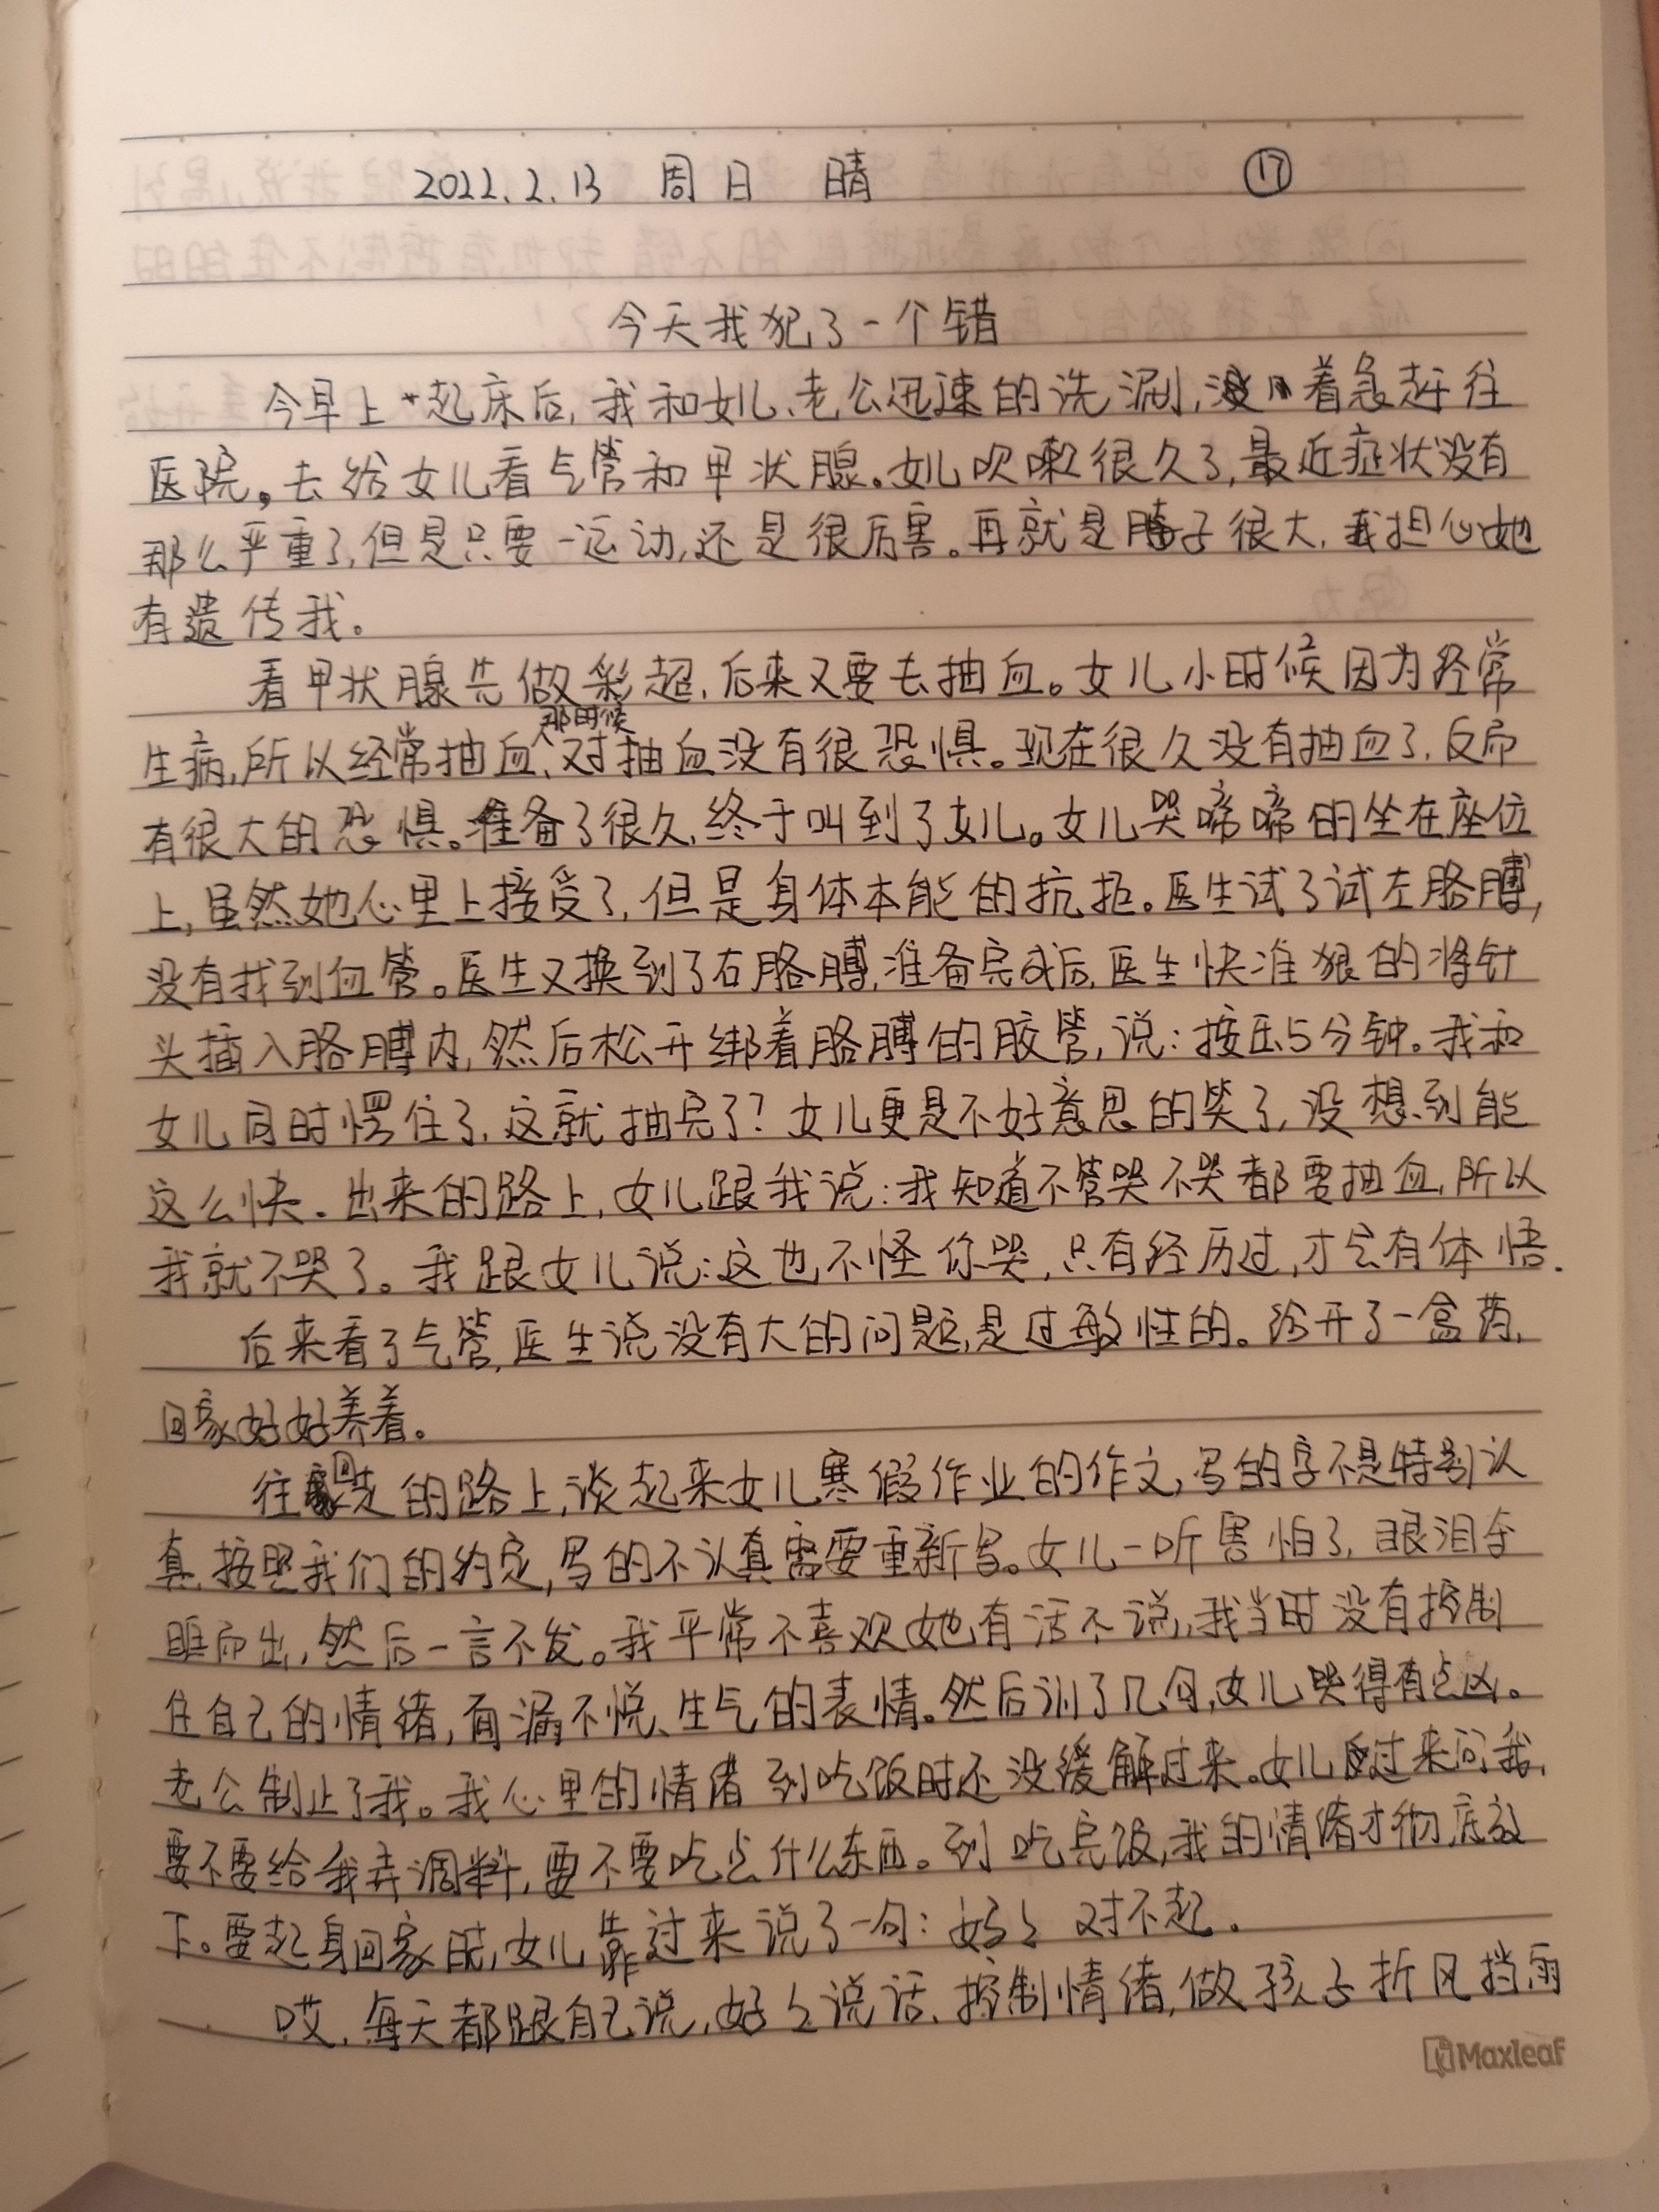 2022.2.13 周日 晴 ⑰
今天我犯了一个错
今早上起床后,我和女儿、老公迅速的洗涮,着急赶往
医院。去给女儿看气管和甲状腺。女儿咳嗽很久了,最近症状没有
那么严重了,但是只要一运动,还是很厉害。再就是脖子很大,我担心她
有遗传我。
看甲状腺先做彩超,后来又要去抽血。女儿小时候因为经常
生病,所以经常抽血,那时候对抽血没有很恐惧。现在很久没有抽血了,反而
有很大的恐惧。准备了很久,终于叫到了女儿。女儿哭啼啼的坐在座位
上,虽然她心里上接受了,但是身体本能的抗拒。医生试了试左胳膊,
没有找到血管。医生又换到了右胳膊,准备完成后,医生快准狠的将针
头插入胳膊内,然后松开绑着胳膊的胶管,说:按压5分钟。我和
女儿同时愣住了,这就抽完了?女儿更是不好意思的笑了,没想到能
这么快。出来的路上,女儿跟我说:我知道不管哭不哭都要抽血,所以
我就不哭了。我跟女儿说:这也不怪你哭,只有经历过,才会有体悟.
后来看了气管,医生说没有大的问题,是过敏性的。给开了一盒药,
回家好好养着。
往回走的路上,谈起来女儿寒假作业的作文,写的字不是特别认
真,按照我们的约定,写的不认真需要重新写。女儿一听害怕了,眼泪夺
眶而出,然后一言不发。我平常不喜欢她有话不说,我当时没有控制
住自己的情绪,面漏不悦、生气的表情。然后训了几句,女儿哭得有点凶。
老公制止了我。我心里的情绪到吃饭时还没缓解过来。女儿反过来问我,
要不要给我弄调料,要不要吃点什么东西。到吃完饭,我的情绪才彻底放
下。要起身回家时,女儿靠过来说了一句:妈々对不起。
哎,每天都跟自己说,好々说话、控制情绪,做孩子折风挡雨
Maxleaf